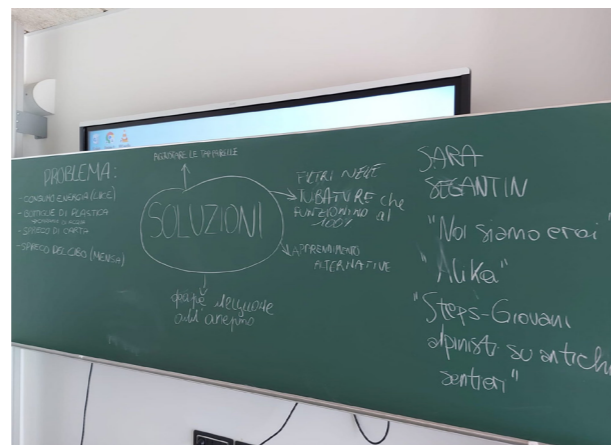 PROBLEMA:
- CONSUMO ENERGIA (LUCE)
- BOTTIGLIE DI PLASTICA
- SPRECO DI CARTA
- SPRECO DEL CIBO (MENSA)
AGGIUSTARE LE TAPPARELLE
SOLUZIONI
FILTRI NELLE
TUBATURE che
FUNZIONINO al
100%
APPRENDIMENTO
ALTERNATIVE
SARA
SEGANTIN
"Noi siamo eroi"
"Alika"
"Steps-Giovani
alpinisti su antichi
sentieri"